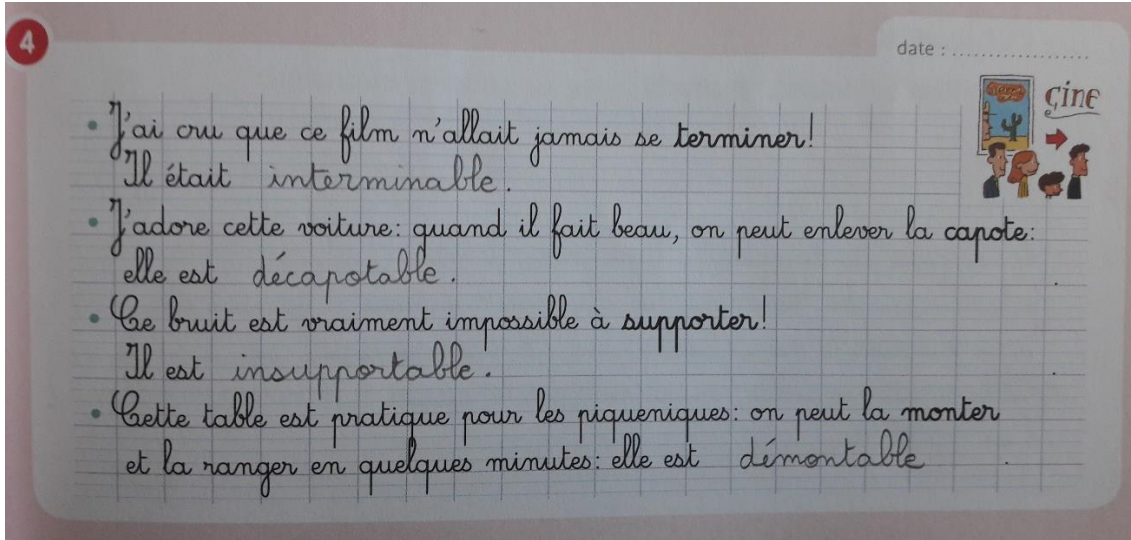 4
date : ....................
ciné
• J'ai cru que ce film n'allait jamais se terminer!
Il était interminable.
• J'adore cette voiture: quand il fait beau, on peut enlever la capote:
elle est décapotable. .
• Ce bruit est vraiment impossible à supporter!
Il est insupportable. .
• Cette table est pratique pour les piqueniques: on peut la monter
et la ranger en quelques minutes: elle est démontable .